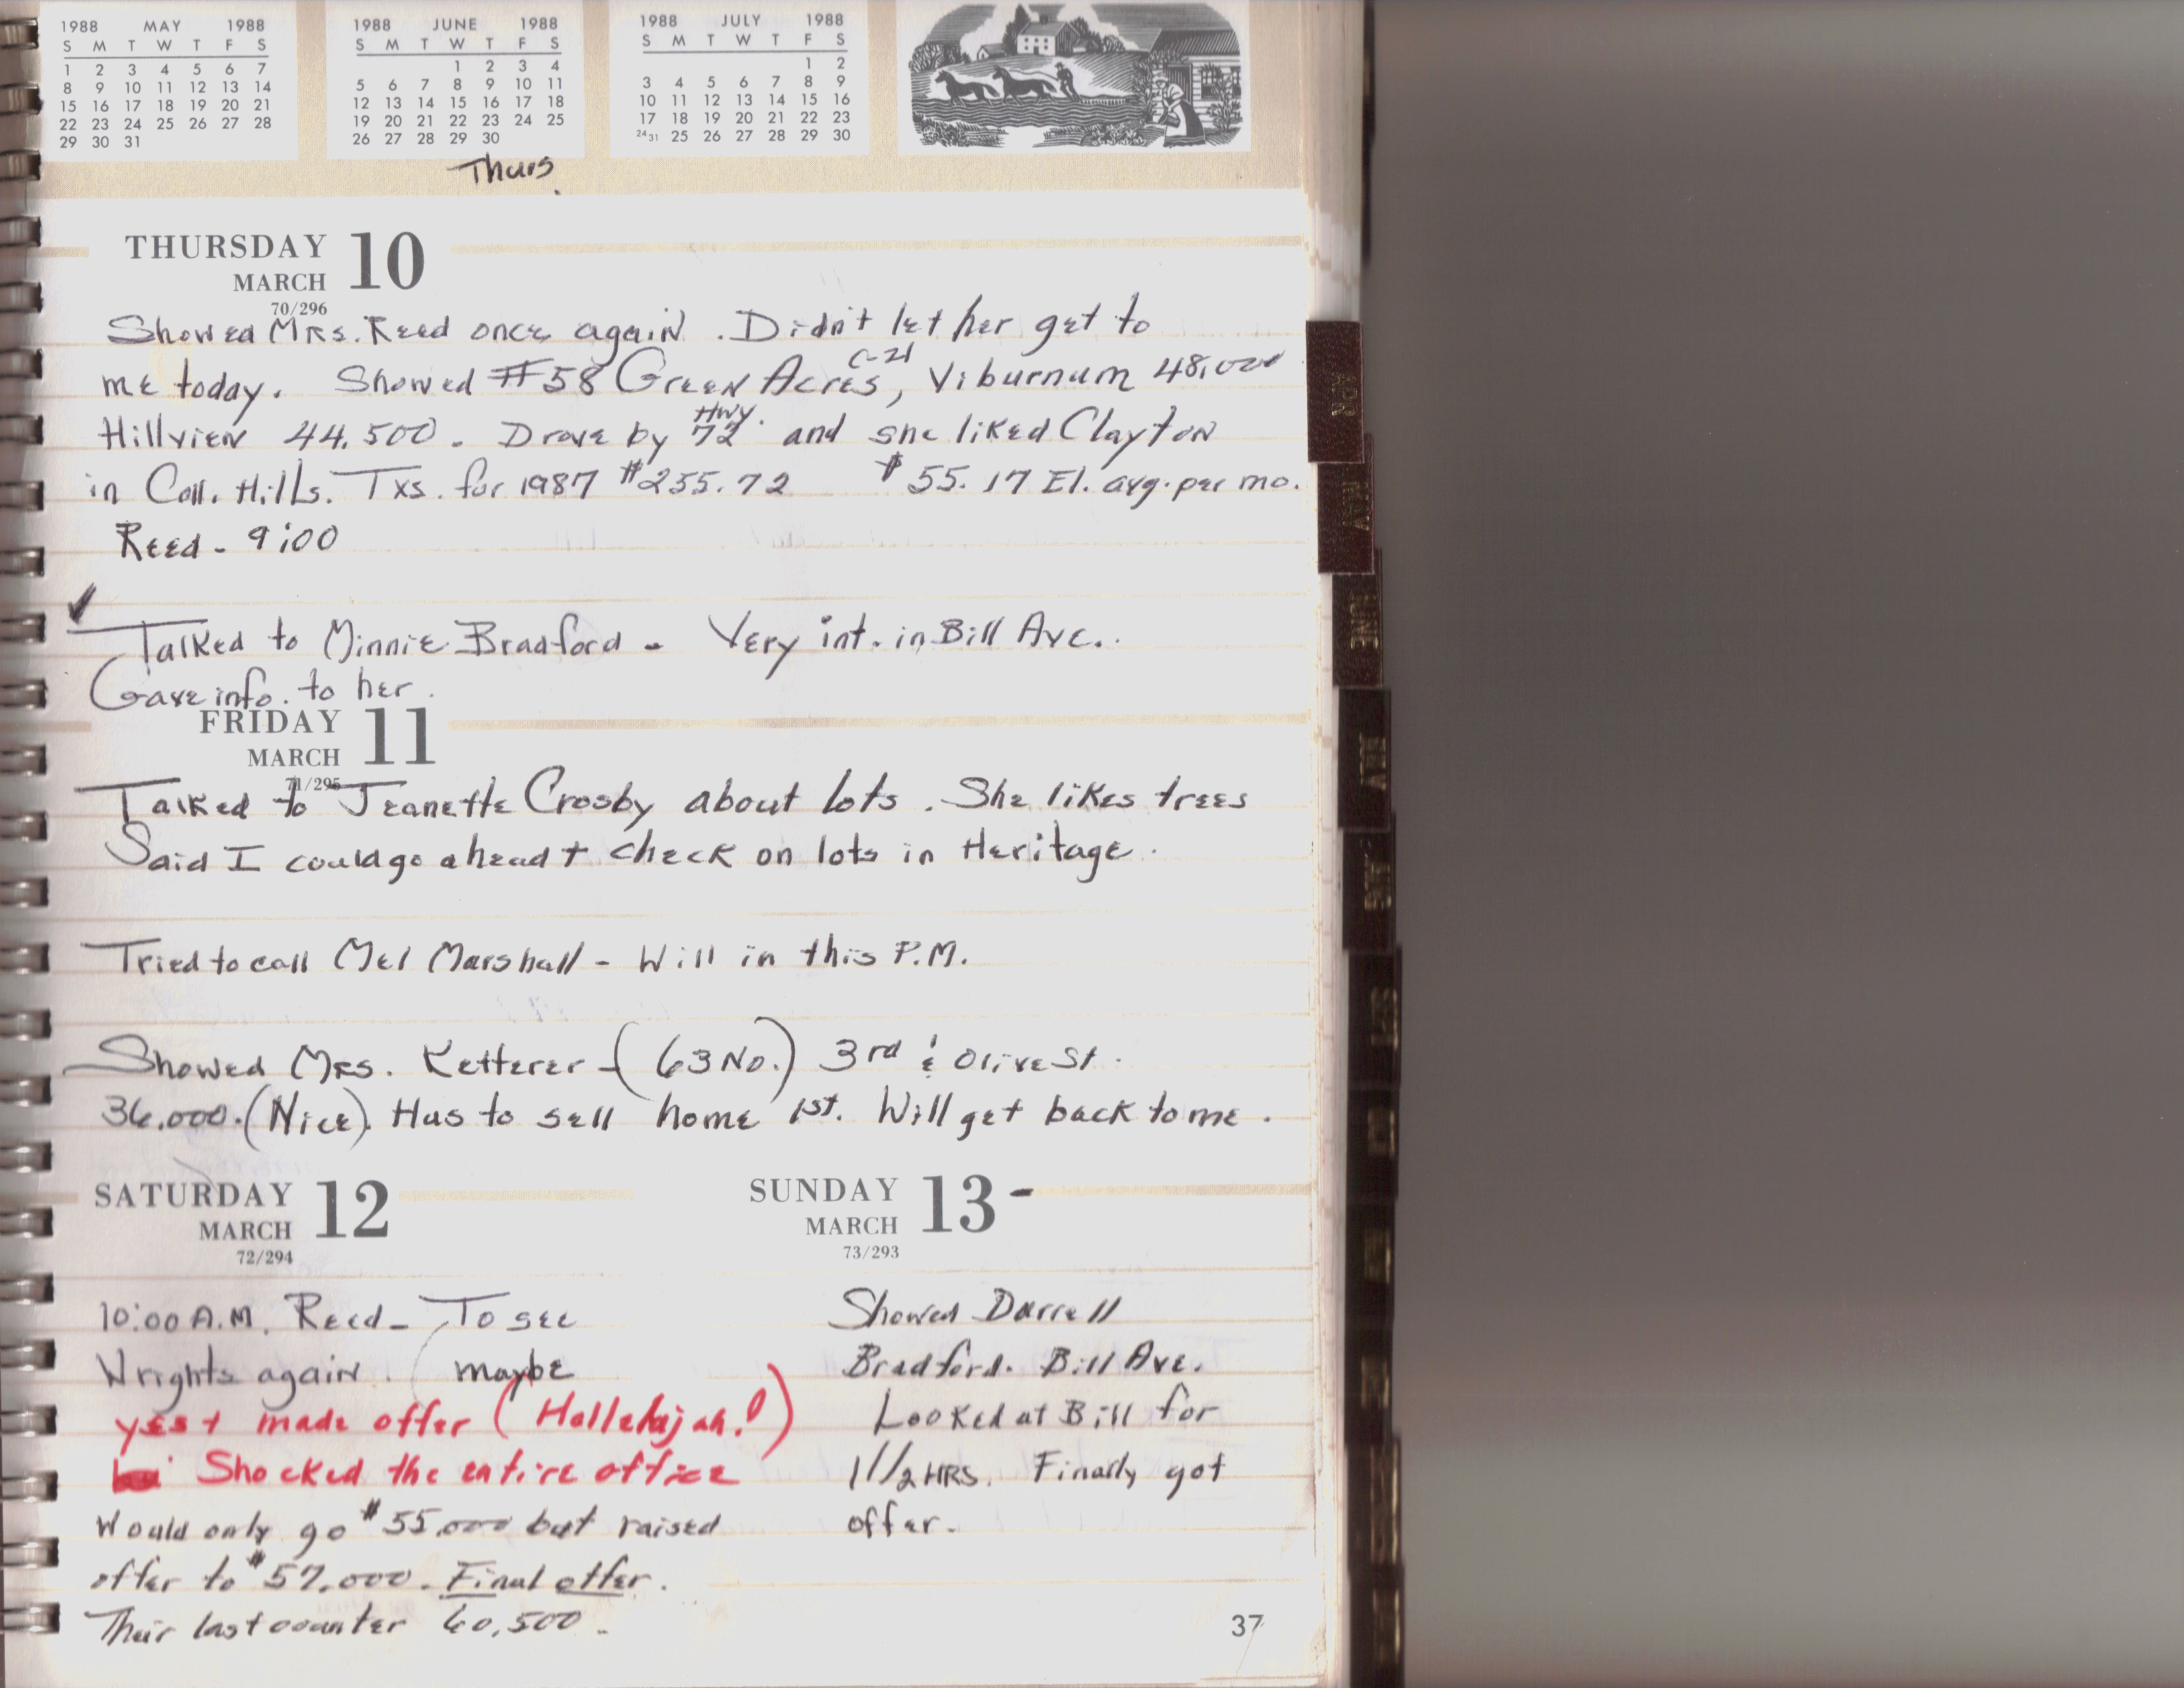 1988 MAY 1988
S M T W T F S
1 2 3 4 5 6 7
8 9 10 11 12 13 14
15 16 17 18 19 20 21
22 23 24 25 26 27 28
29 30 31
1988 JUNE 1988
S M T W T F S
1 2 3 4
5 6 7 8 9 10 11
12 13 14 15 16 17 18
19 20 21 22 23 24 25
26 27 28 29 30
1988 JULY 1988
S M T W T F S
1 2
3 4 5 6 7 8 9
10 11 12 13 14 15 16
17 18 19 20 21 22 23
24 31 25 26 27 28 29 30
Thurs.
THURSDAY 10
MARCH
70/296
Showed Mrs. Reed once again. Didn't let her get to
C-21
me today. Showed #58 Green Acres, Viburnum 48,000
Hwy.
Hillview 44.500. Drove by 72 and she liked Clayton
in Coll. Hills. Txs. for 1987 $255.72 $55.17 El. avg. per mo.
Reed - 9:00
✓
Talked to Minnie Bradford - Very int. in Bill Ave.
Gave info. to her.
FRIDAY 11
MARCH
71/295
Talked to Jeanette Crosby about lots. She likes trees
Said I could go ahead + check on lots in Heritage.
Tried to call Mel Marshall - Will in this P.M.
Showed Mrs. Ketterer - (63 No.) 3rd & Olive St.
36.000. (Nice). Has to sell home 1st. Will get back to me.
SATURDAY 12
MARCH
72/294
10:00 A.M. Reed - To see
Wrights again. maybe
yes + made offer (Hallelujah!)
Shocked the entire office
Would only go $55,000 but raised
offer to $57.000. Final offer.
Their last counter 60,500.
SUNDAY 13 -
MARCH
73/293
Showed Darrell
Bradford. Bill Ave.
Looked at Bill for
1 1/2 HRS. Finally got
offer.
37
APR
MAY
JUNE
JULY
AUG
SEPT